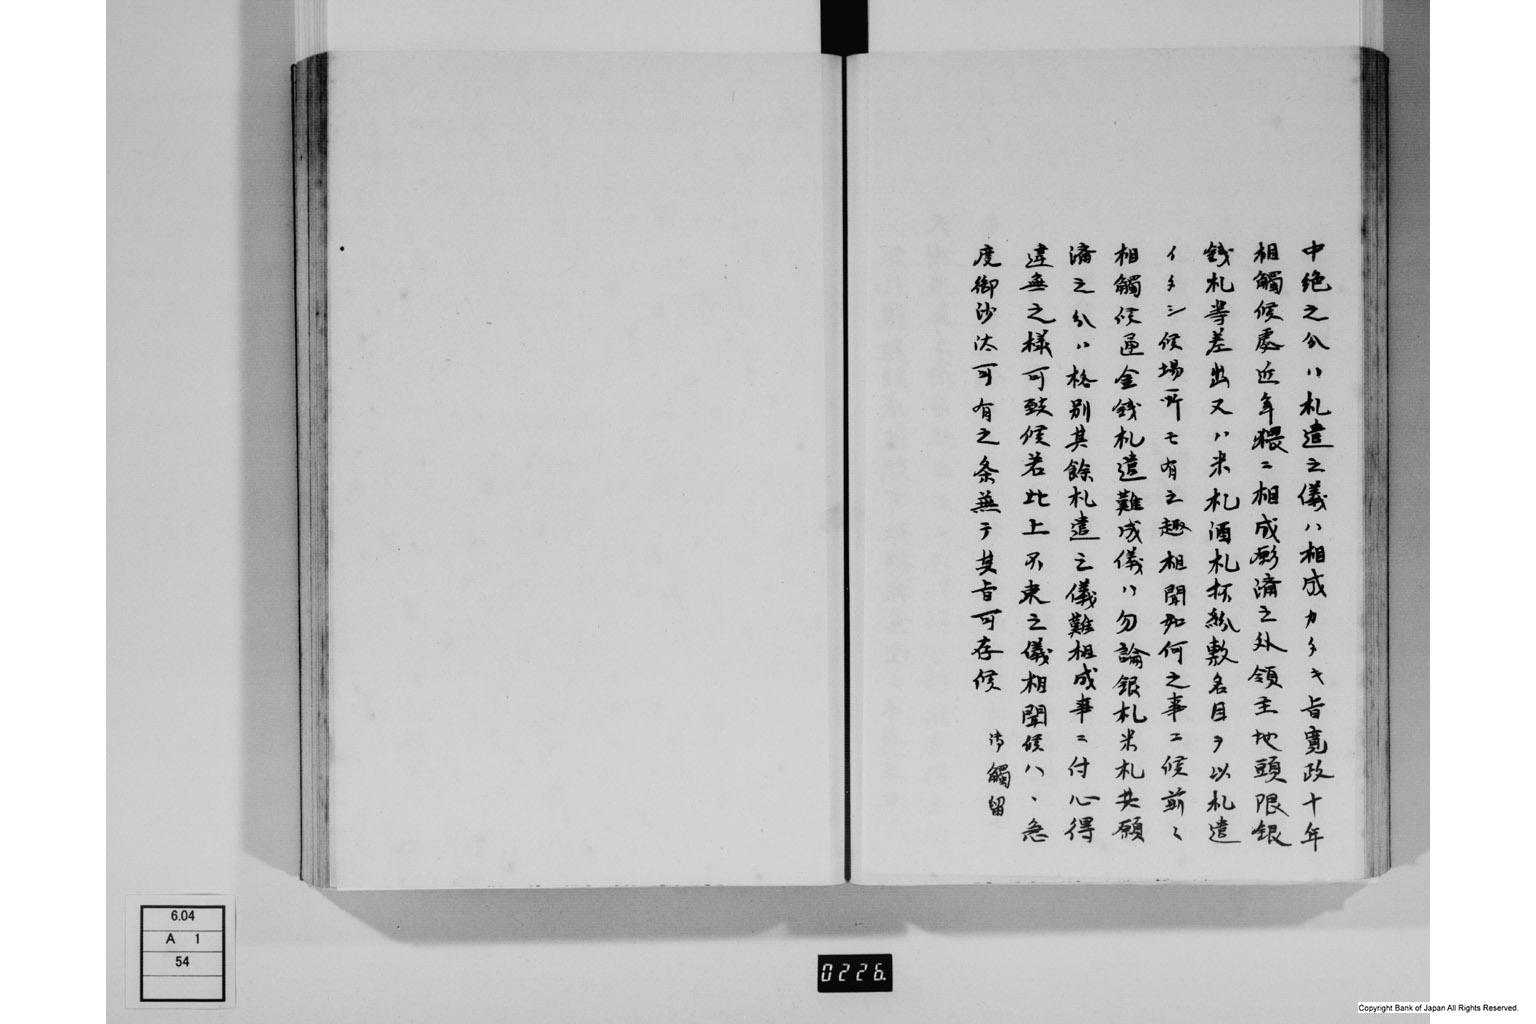 中絶之分ハ札遣之儀ハ相成カタキ旨寛政十年
相觸候處近年猥ニ相成願済之外領主地頭限銀
錢札等差出又ハ米札酒札抔紛敷名目ヲ以札遣
イタシ候場所モ有之趣相聞如何之事ニ候前々
相觸候通金錢札遣難成儀ハ勿論銀札米札共願
済之分ハ格別其餘札遣之儀難相成事ニ付心得
違無之様可致候若此上不束之儀相聞候ハヽ急
度御沙汰可有之条兼テ其旨可存候
御觸留
6.04
A 1
54
0226.
Copyright Bank of Japan All Rights Reserved.